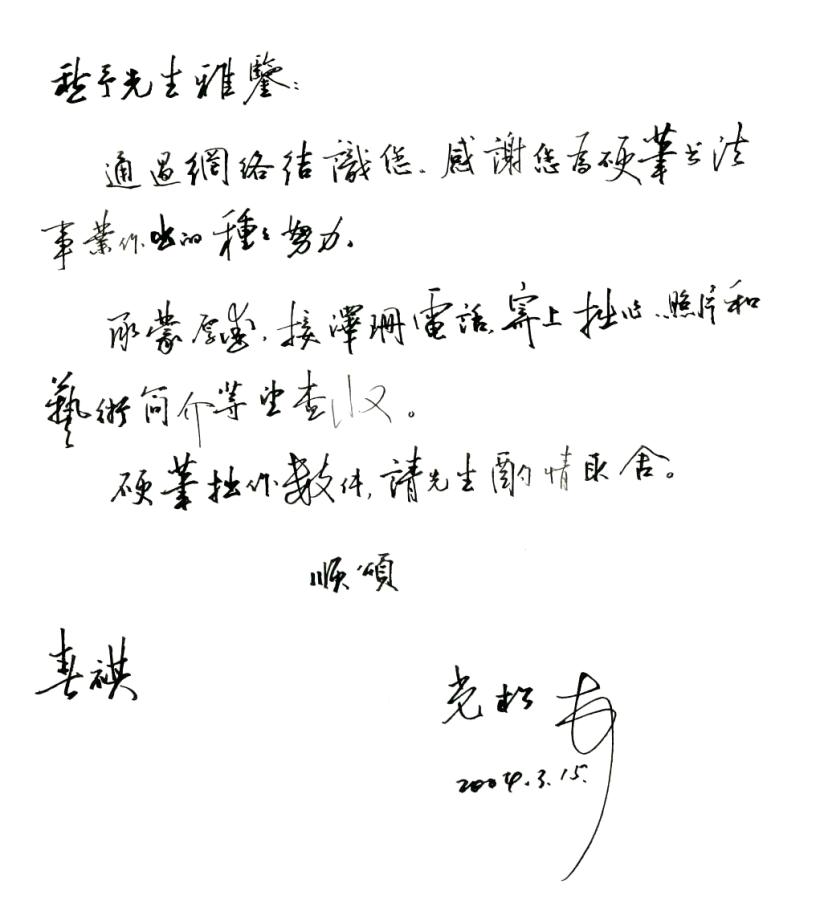 愁予先生雅鑒：
通過網络结識您．感謝您為硬筆书法
事業作出的種種努力．
承蒙厚愛．接澤珊電話．寄上拙作．照片和
藝術简介等望查收。
硬筆拙作數件，請先生酌情取舍。
顺頌
春祺
2004.3.15.